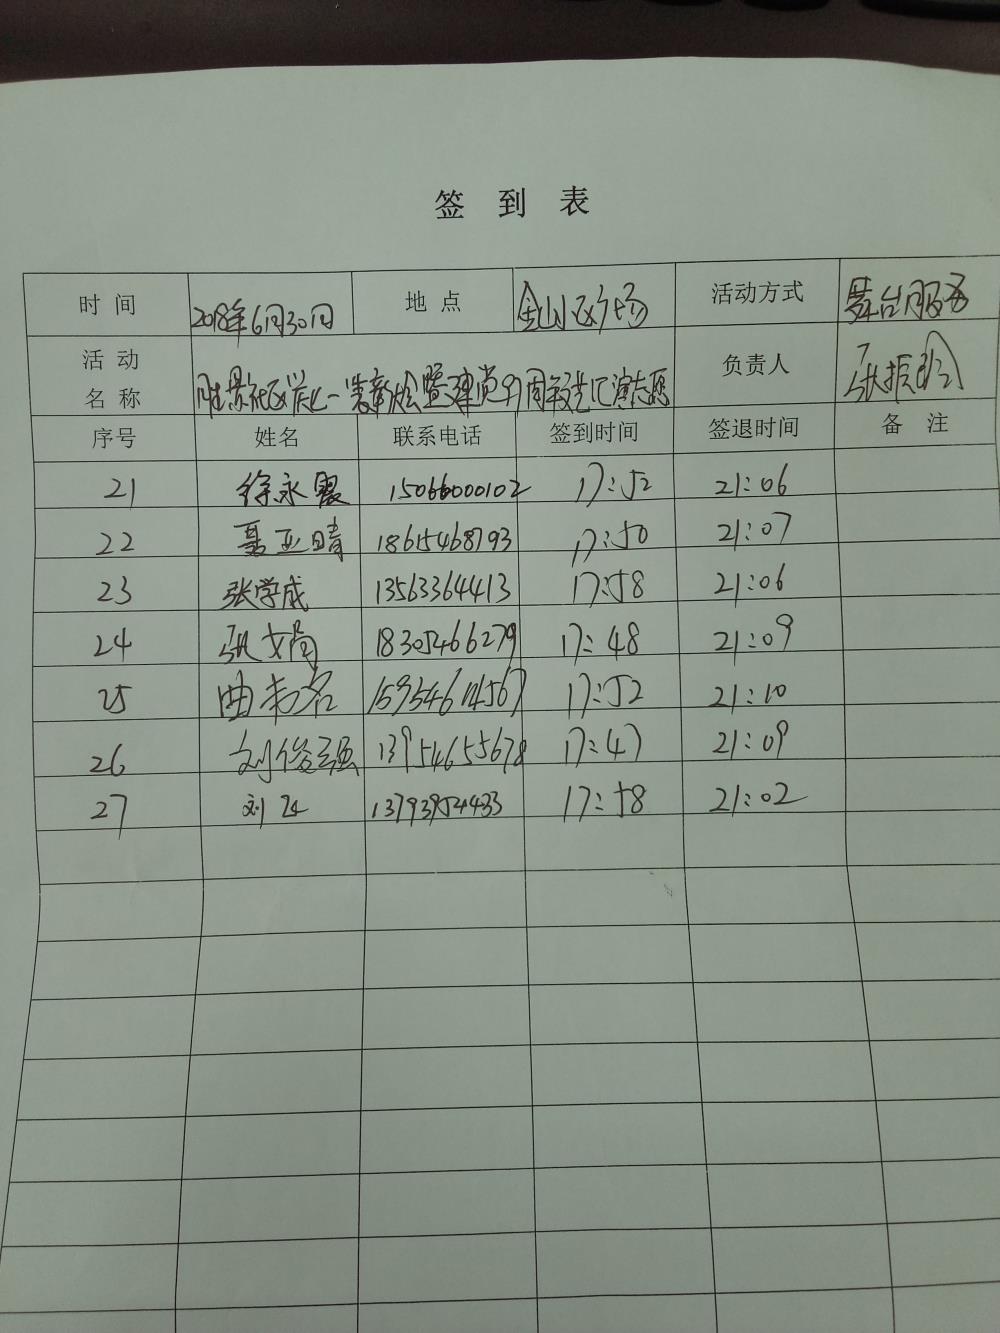 签 到 表
时 间 2018年6月30日 地 点 金山区广场 活动方式 舞台服务
活 动 名 称 胜景社区 暨建党97周年文艺汇演志愿 负责人 张振
序号 姓名 联系电话 签到时间 签退时间 备 注
21 徐永震 15066000102 17:52 21:06
22 聂亚晴 18615468793 17:50 21:07
23 张学成 13563364413 17:58 21:06
24 张文娟 18305466279 17:48 21:09
25 曲 名 17:52 21:10
26 刘俊强 13954655678 17:47 21:09
27 刘 13793954433 17:58 21:02